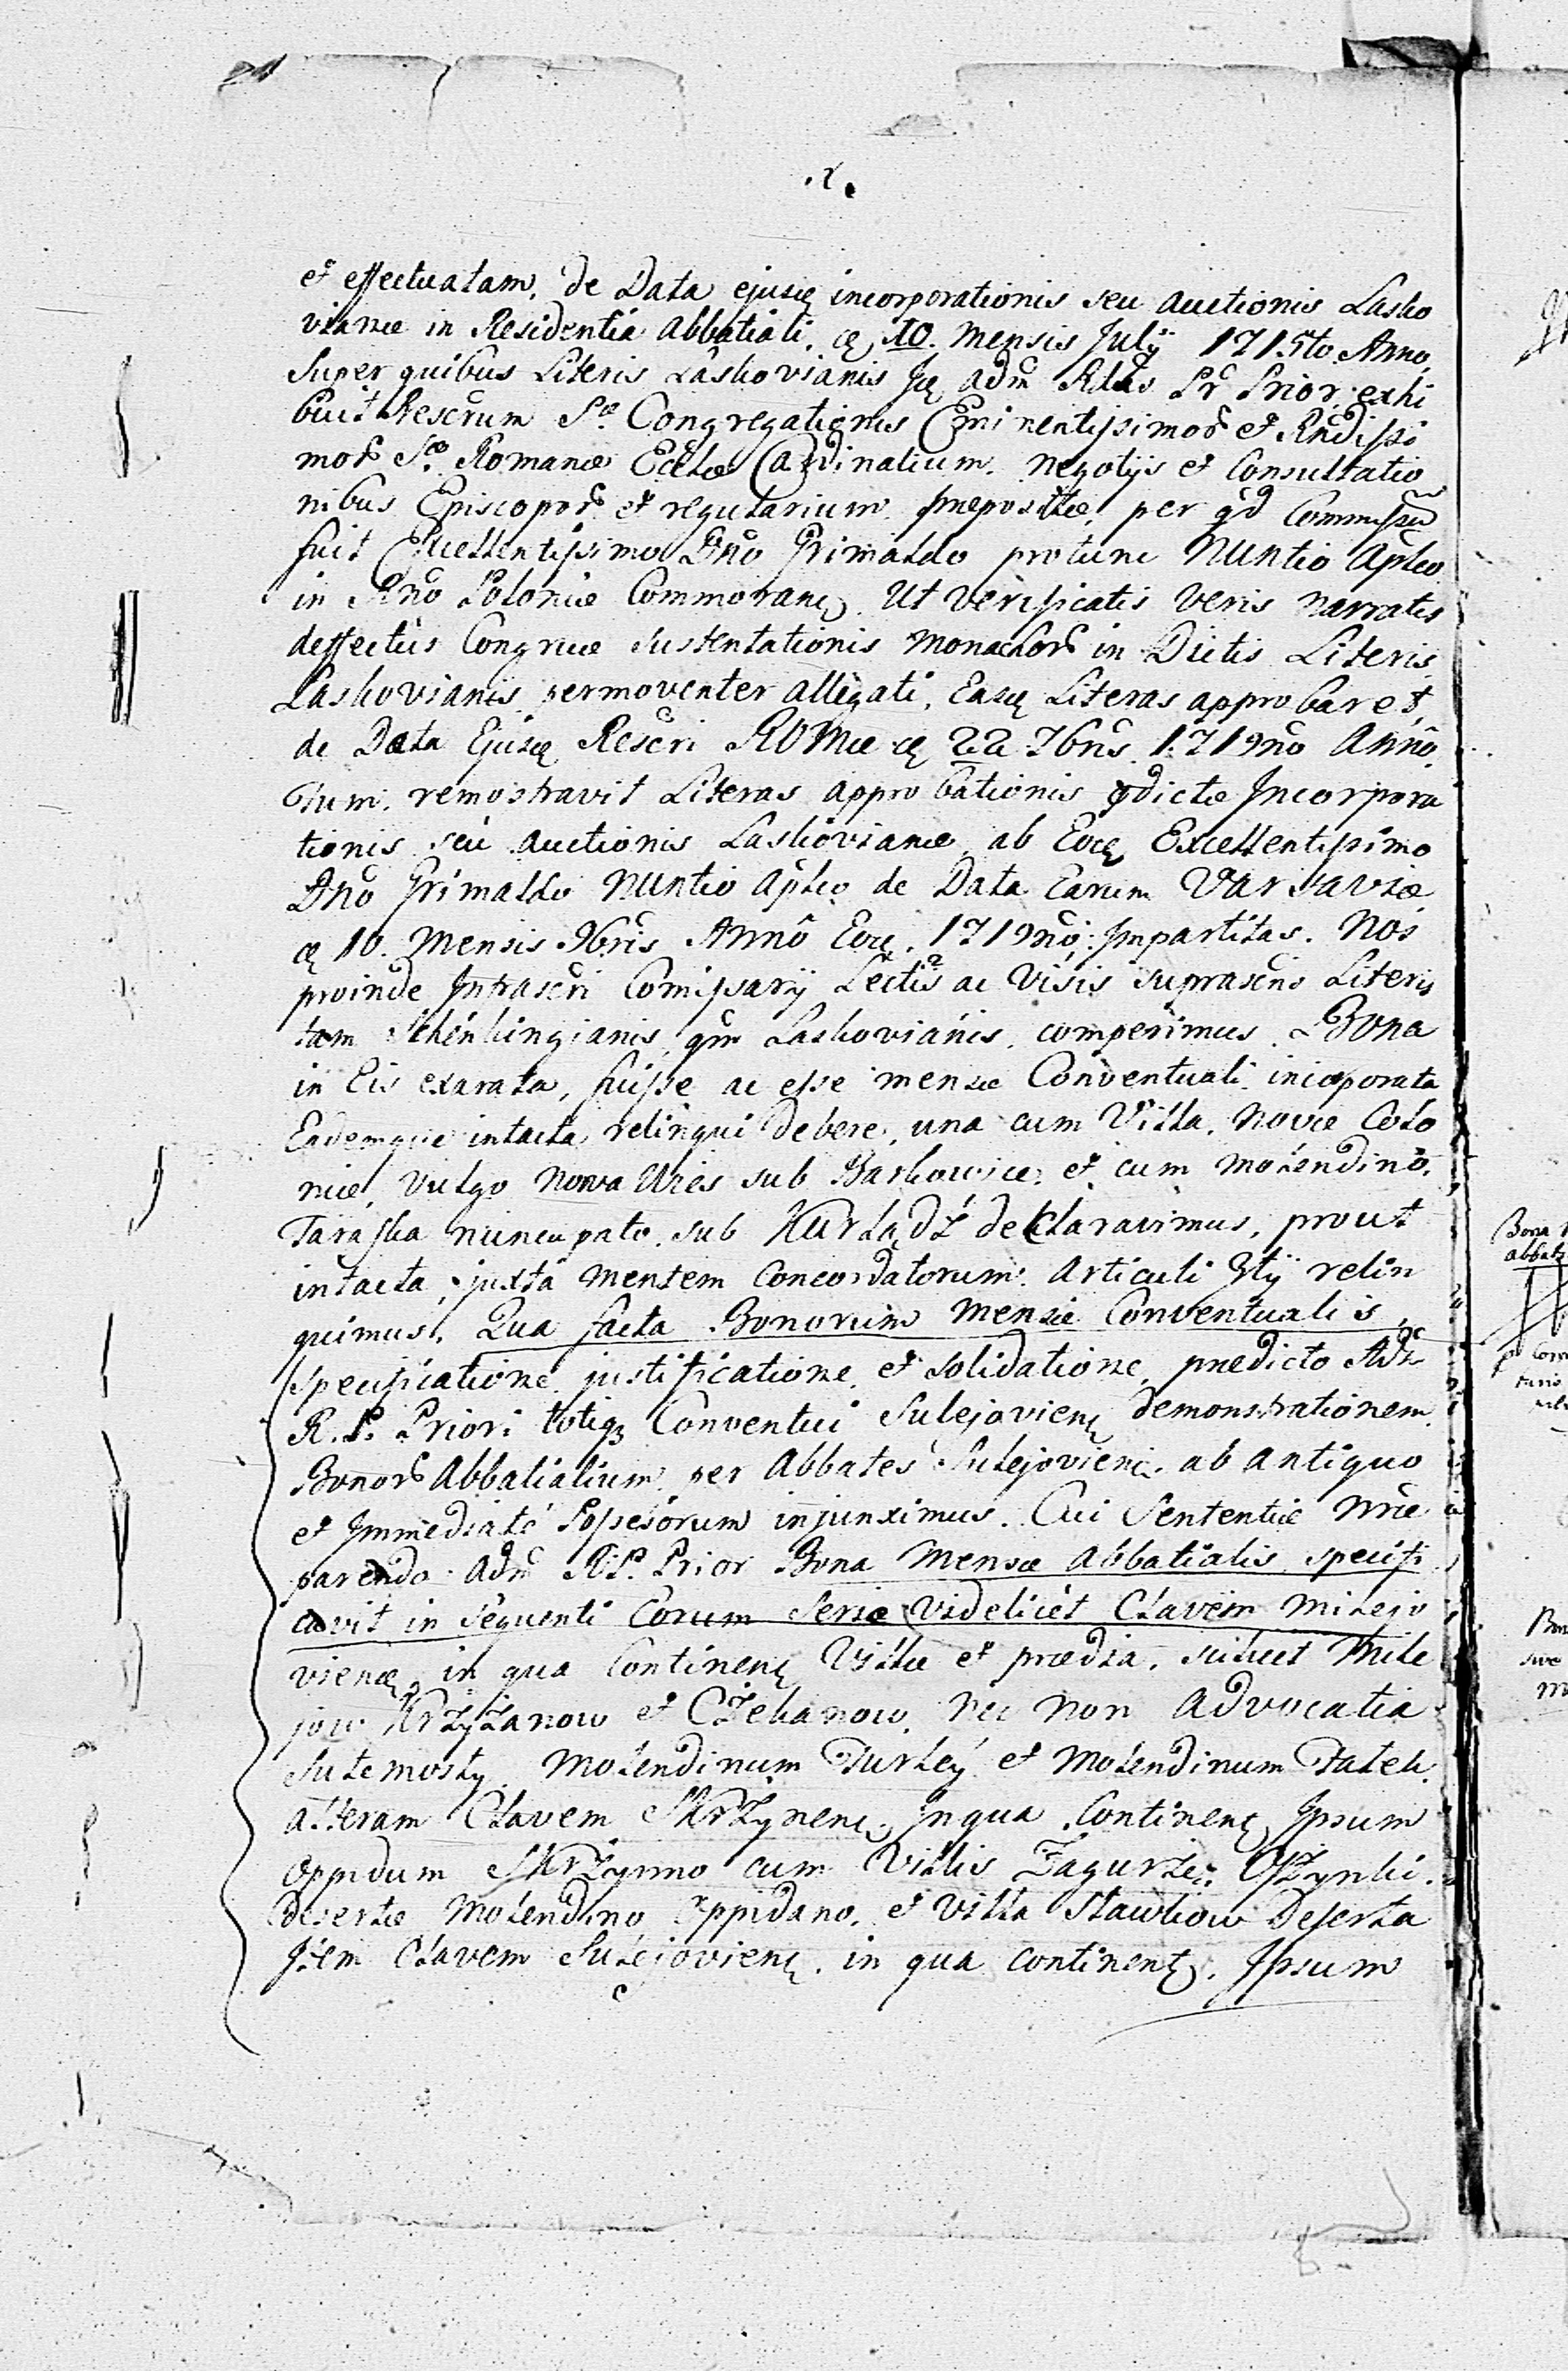 et effectuatam. de Data ejusd incorporationis seu auctionis Lasko
vianæ in Residentia Abbatiali. d 10. Mensis July 1715to Anno,
Super quibus Literis Laskovianis Id adm Rdus Pr Prior exhi
buit Rescrum Sæ Congregationis Eminentissimor et Rndissi
mor Sæ Romanæ Eccliæ Cardinalium. negotijs et Consultatio
nibus Episcopor et regularium præpositæ, per qd Commissu
fuit Excellentissimo Dno Grimaldo protunc Nuntio Aplco
in Rno Poloniæ Commoran. Ut verificatis veris narratis
deffectus Congruæ sustentationis monachor in Dictis Literis
Laskovianis permoventer allegati, Easd Literas approbaret,
de Data Ejusd Rescri ROMæ d 22 7bris 1719no Anno
Tum. remostravit Literas approbationis pdictæ Incorpora
tionis seu auctionis Laskovianæ, ab Eod Excellentissimo
Dno Grimaldo Nuntio Aplco de Data Earum Varsaviæ
d 10. Mensis 9bris Anno Eod. 1719no Impartitas. Nos
proinde Infrascri Comissarij Lectis ac Visis suprascris Literis
tam Schenkingianis, qm Laskovianis, comperimus. Bona
in Eis exarata, fuisse ac esse mensæ Conventuali incorporata
Eademque intacta relinqui debere, una cum Villa. Novæ Colo
niæ, vulgo Nowa Wies sub Barkowice et cum molendino.
Taraska nuncupato. sub Kurządź declaravimus, prout
intacta, juxta mentem Concordatorum Articuli 3tij relin
quimus. Qua facta Bonorum Mensæ Conventualis,
specificatione justificatione et solidatione, prædicto Adm
R. P. Priori totiq Conventui Sulejovien demonstrationem
Bonor Abbatialium per Abbates Sulejovien. ab antiquo
et Immediate Possesorum injunximus. Cui Sententiæ nræ
parendo Adm R.P. Prior Bona Mensæ Abbatialis specifi
cavit in sequenti Eorum Serie Videlicet Clavem Milejo
vien, in qua Continen Villæ et prædia, scilicet Mile
jow Krzyżanow et Czekanow, nec non Advocatia
Sulemosty Molendinum Turkey et Molendinum Fatek.
alteram Clavem Skrzynen, in qua Continen Ipsum
Oppidum Skrzynno cum Villis Zagurze: Oszynki.
Desertæ Molendino Oppidano, et Villa Stawkow Deserta
Item Clavem Sulejovien. in qua continen. Ipsum